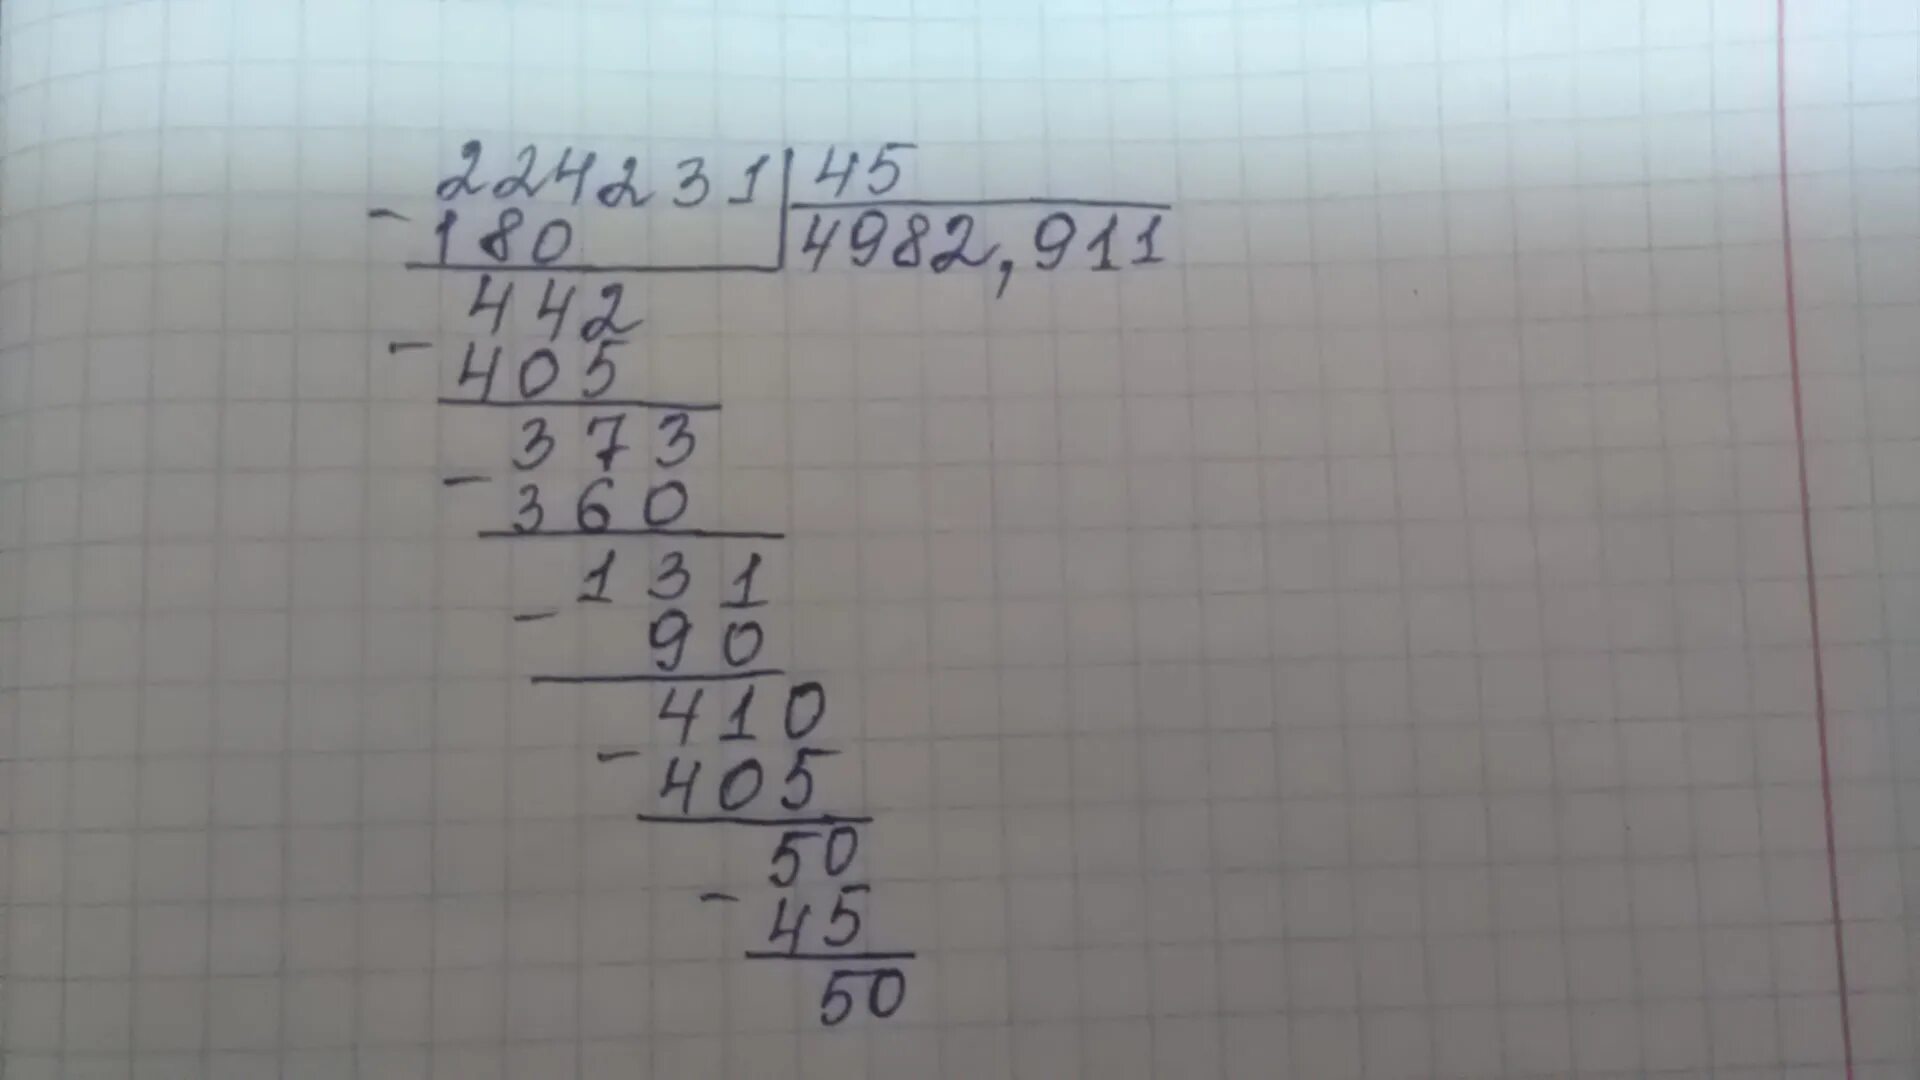 224231 45
- 180 4982,911
442
- 405
373
- 360
131
- 90
410
- 405
50
- 45
50